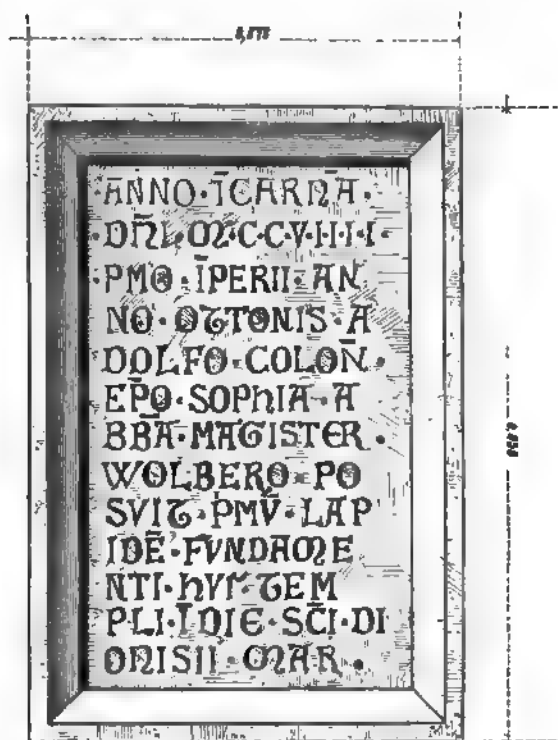 ĀNNO·ĪCARN̄A·
·DN̄I·M·C·C·V·I·I·I·I·
·PMO·ĪPERII·AN
NO·OTTONIS·A
DOLFO·COLON̄·
EP̄O·SOPHIA·A
BB̄A·MAGISTER·
WOLBERO·PO
SVIT·PMV̄·LAP
IDĒ·FVNDAME
NTI·HVI'·TEM
PLI·Ī·DIE·SC̄I·DI
ONISII·MAR·